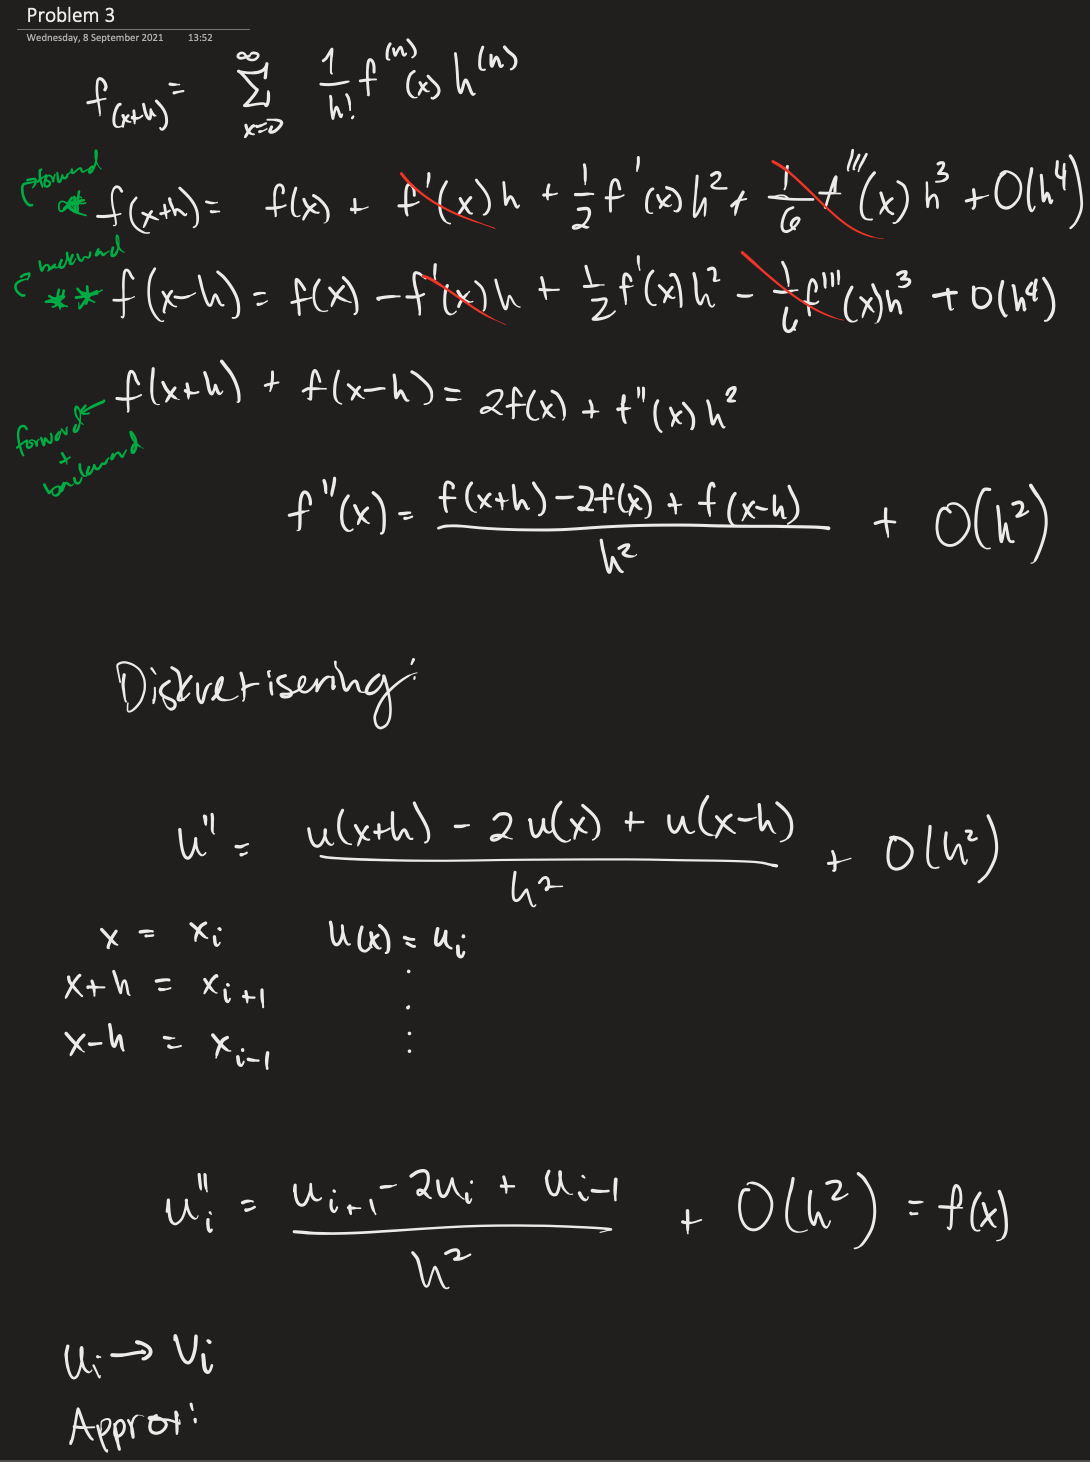 Problem 3
Wednesday, 8 September 2021 13:52
f(x+h) = ∑_{x=0}^{∞} 1/h! f^(n)(x) h^(n)
forward
* f(x+h) = f(x) + f'(x)h + 1/2 f'(x)h² + 1/6 f'''(x)h³ + O(h⁴)
backward
** f(x-h) = f(x) - f'(x)h + 1/2 f'(x)h² - 1/6 f'''(x)h³ + O(h⁴)
f(x+h) + f(x-h) = 2f(x) + f''(x)h²
forward
+
backward
f''(x) = (f(x+h) - 2f(x) + f(x-h))/h² + O(h²)
Diskretisering:
u'' = (u(x+h) - 2u(x) + u(x-h))/h² + O(h²)
x = x_i u(x) = u_i
x+h = x_{i+1}
x-h = x_{i-1}
u''_i = (u_{i+1} - 2u_i + u_{i-1})/h² + O(h²) = f(x)
u_i → v_i
Approx: